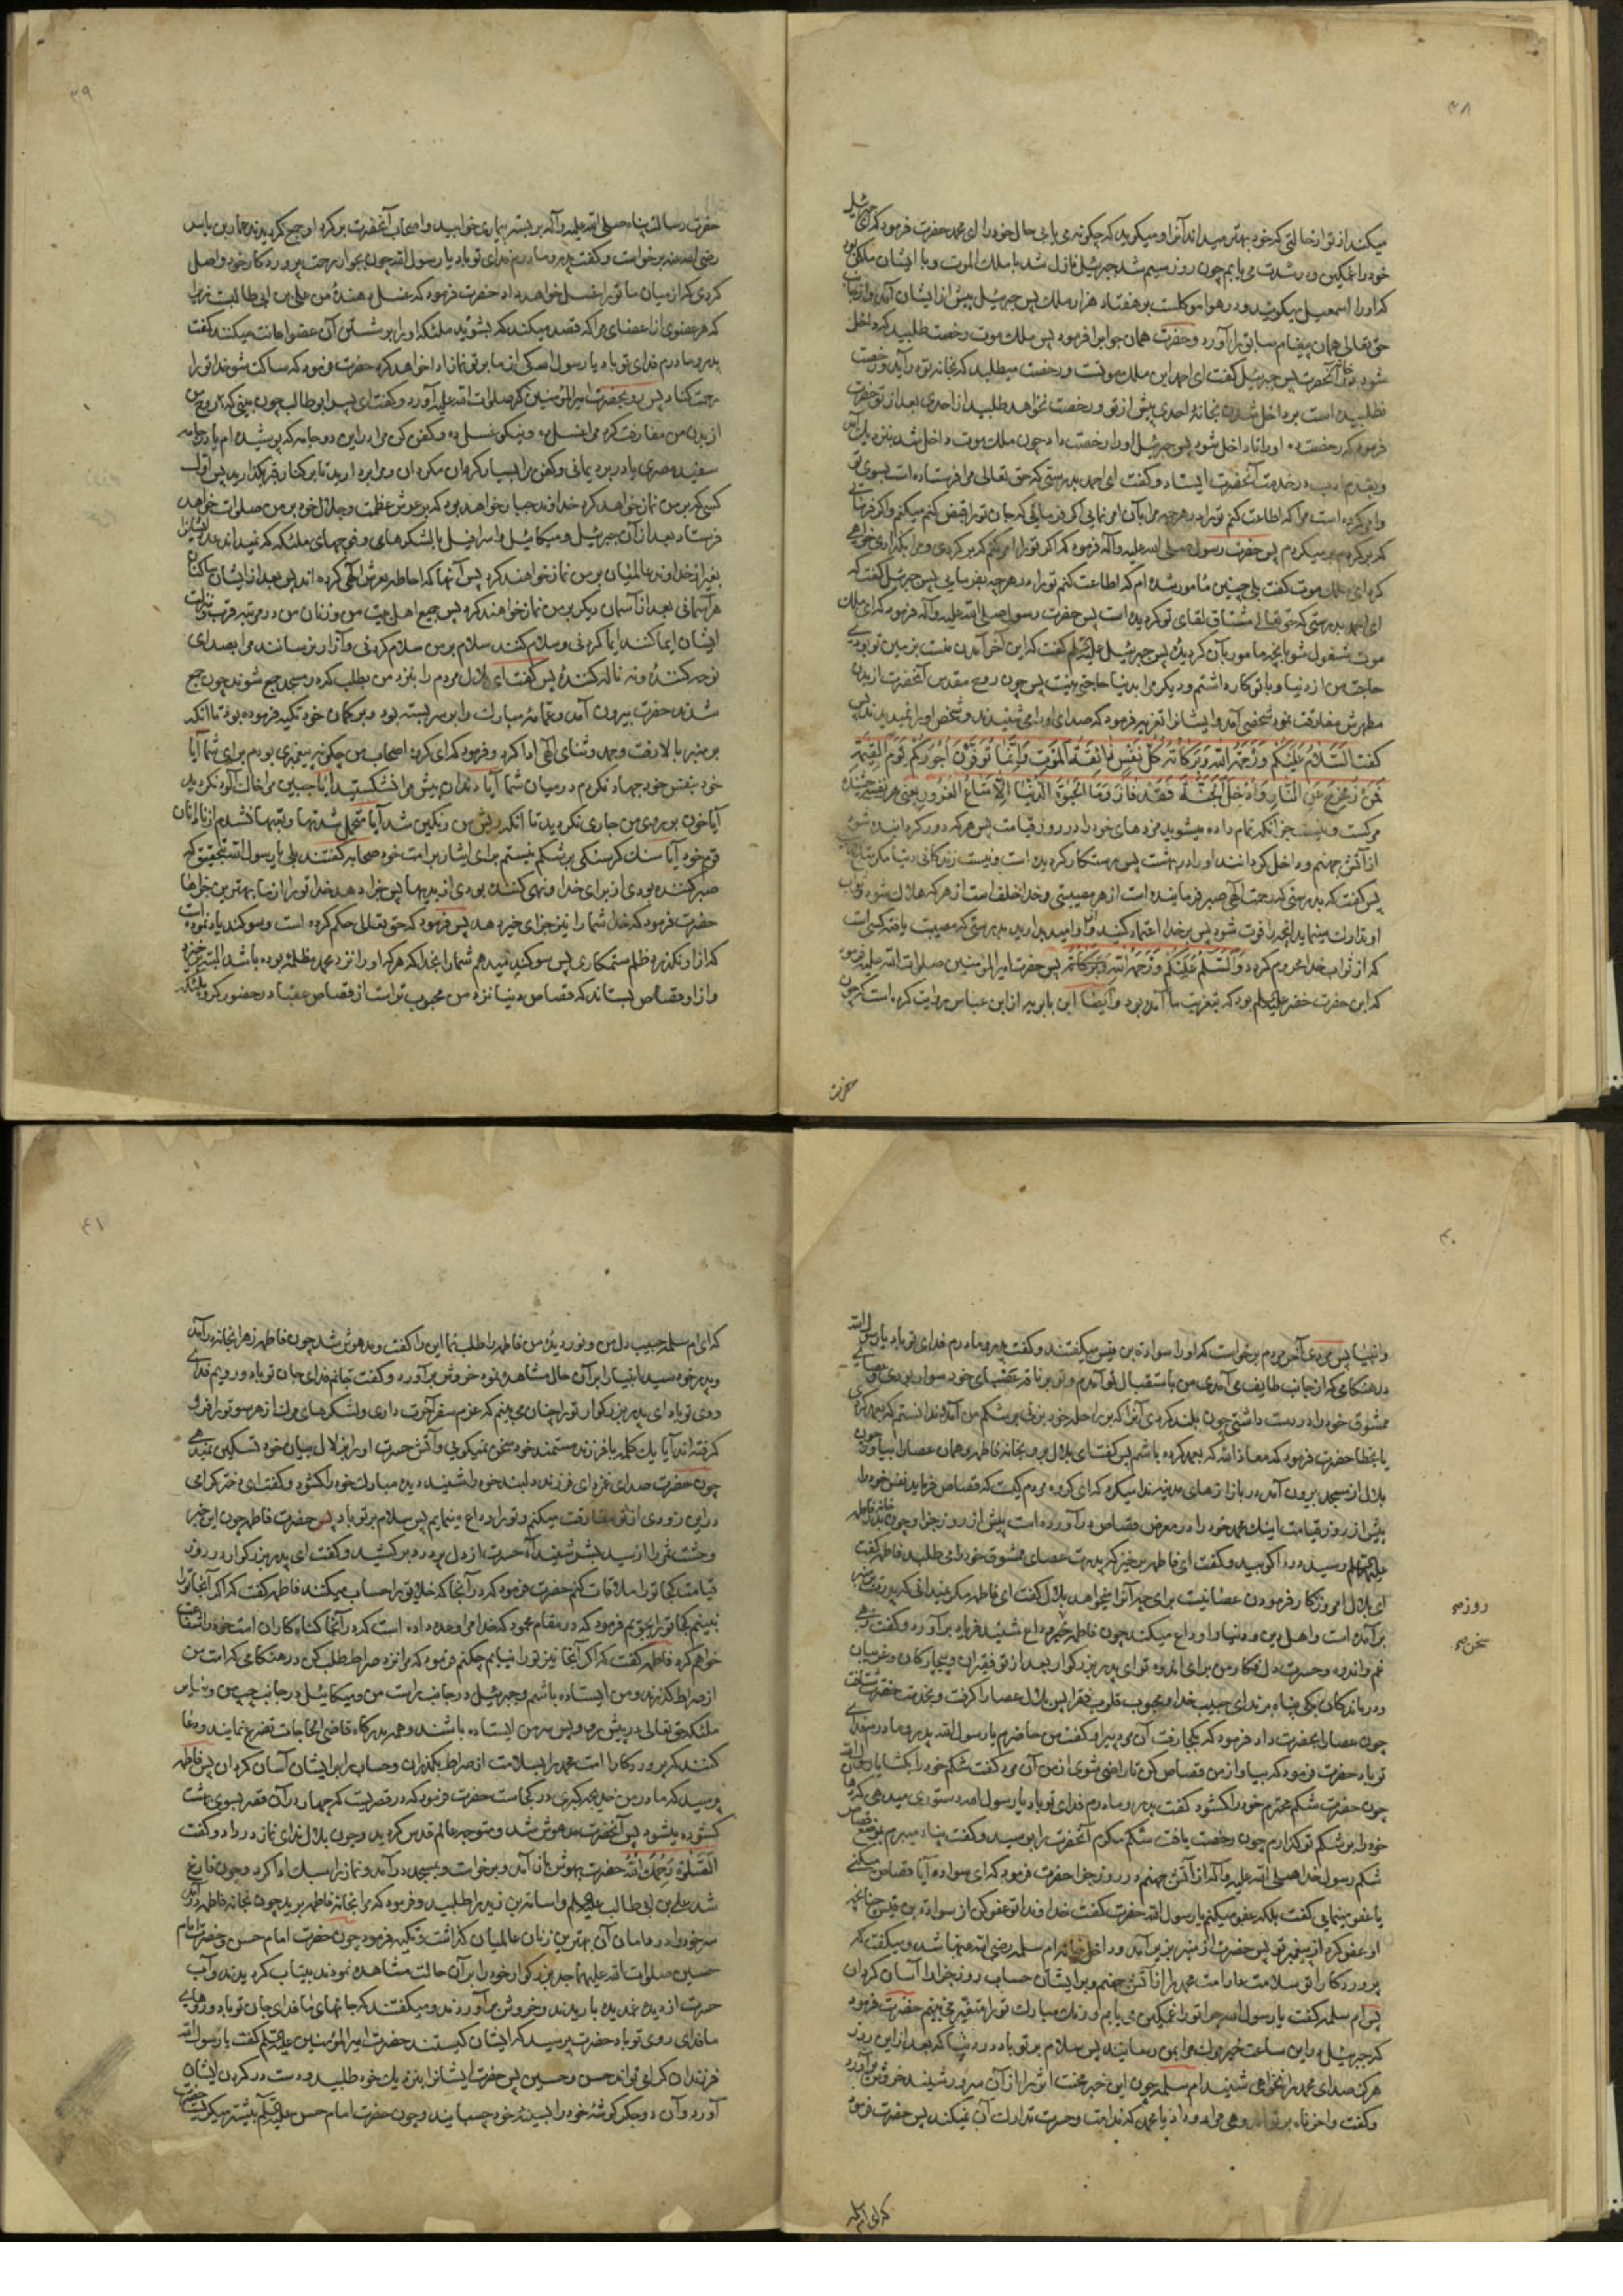 ۳۸
میکند از تو از حالتی که خود بهتر میداند آنرا و میگوید که چگونه می یابی حال خود را ای محمد حضرت فرمود که ای جبرئیل
خود را غمگین و در شدت می یابم چون روز سیم شد جبرئیل نازل شد با ملک الموت و با ایشان ملکی بود
که او را اسمعیل میگویند و در هوا موکلست بر هفتاد هزار ملک پس جبرئیل پیش از ایشان آمد و از جانب
حق تعالی همان پیغام سابق را آورد و حضرت همان جواب را فرمود پس ملک موت رخصت طلبید که داخل
شود در خانه آنحضرت پس جبرئیل گفت ای احمد این ملک موتست و رخصت میطلبد که بخانه تو در آید و رخصت
نطلبیده است بر داخل شدن بخانهٔ احدی پیش از تو و رخصت نخواهد طلبید از احدی بعد از تو حضرت
فرمود که رخصت ده او را تا داخل شود پس جبرئیل او را رخصت داد چون ملک موت داخل شد بنزدیک آمد
و بقدم ادب در خدمت آنحضرت ایستاد و گفت ای احمد بدرستی که حق تعالی مرا فرستاده است بسوی تو
و امر کرده است مرا که اطاعت کنم تو را در هر چه مرا بآن امر نمایی اگر فرمایی که جان تو را قبض کنم میکنم و اگر فرمایی
که بر گردم بر میگردم پس حضرت رسول صلی الله علیه و آله فرمود که اگر تو را امر کنم که بر گردی و مرا بگذاری خواهی
کرد ای ملک موت گفت بلی چنین مأمور شده ام که اطاعت کنم تو را در هر چه بفرمایی پس جبرئیل گفت که
ای احمد بدرستی که حق تعالی مشتاق لقای تو گردیده است پس حضرت رسول صلی الله علیه و آله فرمود که ای ملک
موت مشغول شو بآنچه مامور بآن گردیدهٔ پس جبرئیل علیه السلم گفت که این آخر آمدن منست بزمین تو بودی
حاجت من از دنیا و با تو کار داشتم و دیگر مرا بدنیا حاجتی نیست پس چون روح مقدس آنحضرت از بدن
مطهرش مفارقت نمود شخصی آمد و ایشانرا تعزیه فرمود که صدای او را می شنیدند و شخص او را نمیدیدند پس
گفت السَّلامُ عَلَیْکُم وَرَحْمَةُ اللهِ وَبَرَکاتُهُ کُلُّ نَفْسٍ ذائِقَةُ الْمَوْتِ وَإنَّما تُوَفَّوْنَ اُجُورَکُمْ یَوْمَ الْقِیمَةِ
فَمَنْ زُحْزِحَ عَنِ النَّارِ وَاُدْخِلَ الْجَنَّةَ فَقَدْ فازَ وَمَا الْحَیوةُ الدُّنْیا اِلّا مَتاعُ الْغُرُورِ یعنی هر نفسی چشنده
مرگست و نیست جز آنکه تمام داده میشوید مزدهای خود را در روز قیامت پس هر که دور گردانیده شود
از آتش جهنم و داخل گردانند او را در بهشت پس رستگار گردیده است و نیست زندگانی دنیا مگر متاع
پس گفت که بدرستی که رحمت الهی صبر فرماینده است از هر مصیبتی و خدا خلف است از هر که هلاک شود و ثواب
او تدارک مینماید آنچه را فوت شود پس بر خدا اعتماد کنید و از او امید بدارید بدرستی که مصیبت یافته کسی است
که از ثواب خدا محروم گردد وَالسَّلامُ عَلَیْکُمْ وَرَحْمَةُ اللهِ وَبَرَکاتُهُ پس حضرت امیر المؤمنین صلوات الله علیه فرمود
که این حضرت خضر علیه السلم بود که بتعزیت ما آمده بود و ایضا ابن بابویه از ابن عباس روایت کرده است که چون
حضرت
۳۹
حضرت رسالت پناه صلی الله علیه و آله بر بستر بیماری خوابید و اصحاب آنحضرت بر گرد او جمع گردیدند عمار بن یاسر
رضی الله عنه برخواست و گفت پدر و مادرم فدای تو باد یا رسول الله چون بجوار رحمت پروردگار خود واصل
گردی که از میان ما تو را غسل خواهد داد حضرت فرمود که غسل دهندهٔ من علی بن ابی طالبست زیرا
که هر عضوی از اعضای مرا که قصد میکند که بشوید ملئکه او را بر شستن آن عضو اعانت میکنند گفت
پدر و مادرم فدای تو باد یا رسول الله کی از ما بر تو نماز ادا خواهد کرد حضرت فرمود که ساکت شو خدا تو را
رحمت کناد پس رو بحضرت امیر المؤمنین کرد صلوات الله علیه آورد و گفت ای پسر ابو طالب چون بینی که روح من
از بدن من مفارقت کرد مرا غسل ده و نیکو غسل ده و کفن کن مرا در این دو جامه که پوشیده ام یا در جامه
سفید مصری یا در برد یمانی و کفن مرا بسیار گران مگردان و مرا بر دارید تا بر کنار قبر بگذارید پس اول
کسی که بر من نماز خواهد کرد خداوند جبار خواهد بود که بر عرش عظمت و جلال خود بر من صلوات خواهد
فرستاد بعد از آن جبرئیل و میکائیل و اسرافیل با لشکرهای و فوجهای ملئکه که نمیداند عدد ایشانرا
بغیر از خداوند عالمیان بر من نماز خواهند کرد پس آنها که احاطه بعرش الهی کرده اند پس بعد از ایشان ساکنان
هر آسمانی بعد از آسمان دیگر بر من نماز خواهند کرد پس جمیع اهل بیت من و زنان من در مرتبه قرب و منزلت
ایشان ایما کنند ایما کردنی و سلام کنند سلام بر من سلام کردنی و آزار نرسانند مرا بصدای
نوحه کنندهٔ و نه ناله کنندهٔ پس گفت ای بلال مردم را بنزد من بطلب که در مسجد جمع شوند چون جمع
شدند حضرت بیرون آمد و عمامهٔ مبارک را بر سر بسته بود و بر کمان خود تکیه فرموده بود تا آنکه
بر منبر بالا رفت و حمد و ثنای الهی ادا کرد و فرمود که ای گروه اصحاب من چگونه پیغمبری بودم برای شما آیا
خود بنفس خود جهاد نکردم در میان شما آیا دندان پیش مرا نشکستید آیا جبین مرا خاک آلود نکردید
آیا خون بر روی من جاری نکردید تا آنکه ریش من رنگین شد آیا متحمل شدتها و تعبها نشدم از نادانان
قوم خود آیا سنک گرسنگی بر شکم نبستم برای ایثار بر امت خود صحابه گفتند بلی یا رسول الله بتحقیق که
صبر کننده بودی از برای خدا و نهی کننده بودی از بدیها پس جزا دهد خدا تو را از ما بهترین جزاها
حضرت فرمود که خدا شما را نیز جزای خیر دهد پس فرمود که حق تعالی حکم کرده است و سوگند یاد نموده است
که از او نگذرد ظلم ستمکاری پس سوگند میدهم شما را بخدا که هر که او را نزد محمد مظلمهٔ بوده باشد البته برخیزد
و از او قصاص بستاند که قصاص دنیا نزد من محبوب تر است از قصاص عقبا در حضور گروه ملئکه
۴۰
و انبیا پس مردی آخر مردم برخواست که او را سوادة بن قیس میگفتند و گفت پدر و مادرم فدای تو باد یا رسول الله
در هنگامی که از جانب طایف می آمدی من باستقبال تو آمدم و تو بر ناقه غضبای خود سوار بودی و عصای
ممشوق خود را در دست داشتی چون بلند کردی آنرا که بر راحله خود بزنی بر شکم من آمد و ندانستم که بعمد کردی
یا بخطا حضرت فرمود که معاذ الله که بعمد کرده باشم پس گفت ای بلال برو بخانه فاطمه و همان عصا را بیاور چون
بلال از مسجد بیرون آمد در بازارهای مدینه ندا میکرد که ای گروه مردم کیست که قصاص فرماید نفس خود را
پیش از روز قیامت اینک محمد خود را در معرض قصاص در آورده است پیش از روز جزا و چون بدر خانه فاطمه
علیها السلم رسید در را کوبید و گفت ای فاطمه برخیز که پدرت عصای ممشوق خود را می طلبد فاطمه گفت
ای بلال امروز روز کار فرمودن عصا نیست برای چه آنرا میخواهد بلال گفت ای فاطمه مگر نمیدانی که پدرت بر منبر
بر آمده است و اهل دین و دنیا را وداع میکند چون فاطمه خبر وداع شنید فریاد بر آورد و گفت زهی
غم و اندوه و حسرت دل فکار من برای اندوه تو ای پدر بزرگوار بعد از تو فقیران و بیچارگان و غریبان
و درماندگان بکی پناه برند ای حبیب خدا و محبوب قلوب فقرا پس بلال عصا را گرفت و بخدمت حضرت شتافت
چون عصا را بحضرت داد فرمود که بکجا رفت آن مرد پیر او گفت من حاضرم یا رسول الله پدر و مادرم فدای
تو باد حضرت فرمود که بیا و از من قصاص کن تا راضی شوی از من آن مرد گفت شکم خود را بگشا یا رسول الله
چون حضرت شکم محترم خود را گشود گفت پدر و مادرم فدای تو باد یا رسول الله دستوری میدهی که دهان
خود را بر شکم تو گذارم چون رخصت یافت شکم مکرم آنحضرت را بوسید و گفت پناه میبرم بموضع قصاص
شکم رسول خدا صلی الله علیه و آله از آتش جهنم در روز جزا حضرت فرمود که ای سواده آیا قصاص میکنی
یا عفو مینمایی گفت بلکه عفو میکنم یا رسول الله حضرت گفت خداوندا تو عفو کن از سوادة بن قیس چنانچه
او عفو کرد از پیغمبر تو پس حضرت از منبر بزیر آمد و داخل خانه ام سلمه رضی الله عنها شد و میگفت که
پروردگارا تو سلامت دار امت محمد را از آتش جهنم و بر ایشان حساب روز جزا را آسان گردان
پس ام سلمه گفت یا رسول الله چرا تو را غمگین می یابم و رنک مبارک تو را متغیر می بینم حضرت فرمود
که جبرئیل در این ساعت خبر مرک مرا بمن رسانید پس سلام بر تو باد در دنیا که بعد از این روز
هرگز صدای محمد را نخواهی شنید ام سلمه چون این خبر محنت اثر را از آن سرور شنید خروش بر آورد
و گفت واحزناه بر تو اندوهی مرا رو داد یا محمد که ندامت و حسرت تدارک آن نمیکند پس حضرت فرمود
روزه
سخن
که ای ام سلمه
۴۱
که ای ام سلمه حبیب دل من و نور دیدهٔ من فاطمه را طلب نما این را گفت و مدهوش شد چون فاطمه زهرا بخانه در آمد
و پدر خود سید انبیا را بر آن حال مشاهده نمود خروش بر آورد و گفت جانم فدای جان تو باد و رویم فدای
روی تو باد ای پدر بزرگوار تو را چنان می بینم که عزم سفر آخرت داری و لشکرهای مرک از هر سو تو را فرو
گرفته اند آیا یک کلمه با فرزند مستمند خود سخن نمیگویی و آتش حسرت او را بزلال بیان خود تسکین نمیدهی
چون حضرت صدای غمزدهٔ فرزند دلبند خود را شنید دیده مبارک خود را گشود و گفت ای دختر گرامی
در این زودی از تو مفارقت میکنم و تو را وداع مینمایم پس سلام بر تو باد پس حضرت فاطمه چون این خبر
وحشت اثر را از سید بشر شنید آه حسرت از دل پر درد بر کشید و گفت ای پدر بزرگوار در روز
قیامت کجا تو را ملاقات کنم حضرت فرمود که در آنجا که خلایق را حساب میکنند فاطمه گفت که اگر آنجا تو را
نبینم کجا تو را بجویم فرمود که در مقام محمود که خدا مرا وعده داده است که در آنجا گناه کاران امت خود را شفاعت
خواهم کرد فاطمه گفت که اگر آنجا نیز تو را نیابم چکنم فرمود که مرا نزد صراط طلب کن در هنگامی که امت من
از صراط گذرند و من ایستاده باشم و جبرئیل در جانب راست من و میکائیل در جانب چپ من و سایر
ملئکه حق تعالی در پیش رو و پس سر من ایستاده باشند و همه بدرگاه قاضی الحاجات تضرع نمایند و دعا
کنند که پروردگارا امت محمد را بسلامت از صراط بگذران و حساب را بر ایشان آسان گردان پس فاطمه
پرسید که مادر من خدیجه کبری در کجاست حضرت فرمود که در قصریست که چهار در آن قصر بسوی بهشت
گشوده میشود پس آنحضرت مدهوش شد و متوجه عالم قدس گردید و چون بلال ندای نماز در داد و گفت
الصَّلوة رَحِمَکَ اللهُ حضرت بهوش باز آمد و برخواست و بمسجد در آمد و نماز را سبک ادا کرد و چون فارغ
شد علی بن ابی طالب علیه السلم و اسامة بن زید را طلبید و فرمود که مرا بخانهٔ فاطمه برید چون بخانه فاطمه در آمد
سر خود را در دامان آن بهترین زنان عالمیان گذاشت و تکیه فرمود چون حضرت امام حسن و حضرت امام
حسین صلوات الله علیهما جد بزرگوار خود را بر آن حالت مشاهده نمودند بیتاب گردیدند و آب
حسرت از دیده غمدیده باریدند و خروش بر آوردند و میگفتند که جانهای ما فدای جان تو باد و رویهای
ما فدای روی تو باد حضرت پرسید که ایشان کیستند حضرت امیر المؤمنین علیه السلم گفت یا رسول الله
فرزندان گرامی تو اند حسن و حسین پس حضرت ایشانرا بنزدیک خود طلبید و دست در گردن ایشان
آورد و آن دو جگر گوشهٔ خود را بسینهٔ خود چسبانید و چون حضرت امام حسن علیه السلم بیشتر میگریست حضرت